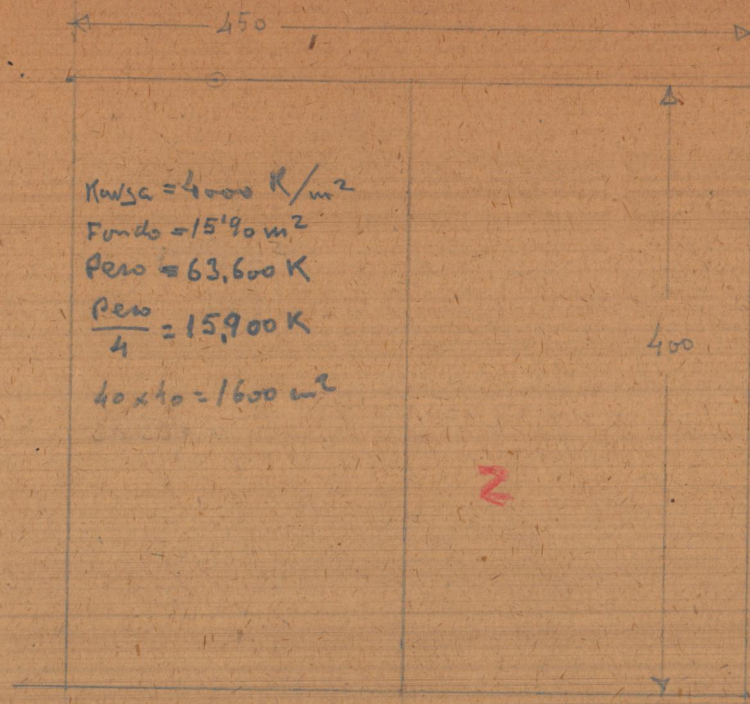 450
Karga = 4000 K/m²
Fondo = 15'90 m²
Peso = 63,600 K
Peso/4 = 15,900 K
400
40 x 40 = 1600 cm²
Z